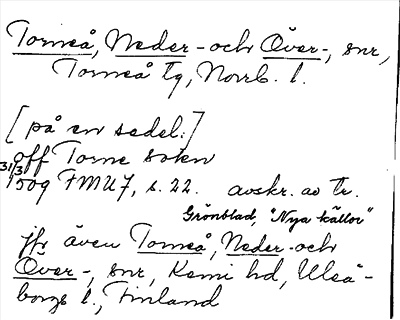 Torneå, Neder- och Över-, snr,
Torneå tg, Norrb. l.
[på en sedel:]
off Torne soken
31/3 1509 FMU 7, s. 22. avskr. av tr.
Grönblad, "Nya källor"
jfr även Torneå, Neder- och
Över-, snr, Kemi hd, Uleå-
borgs l., Finland